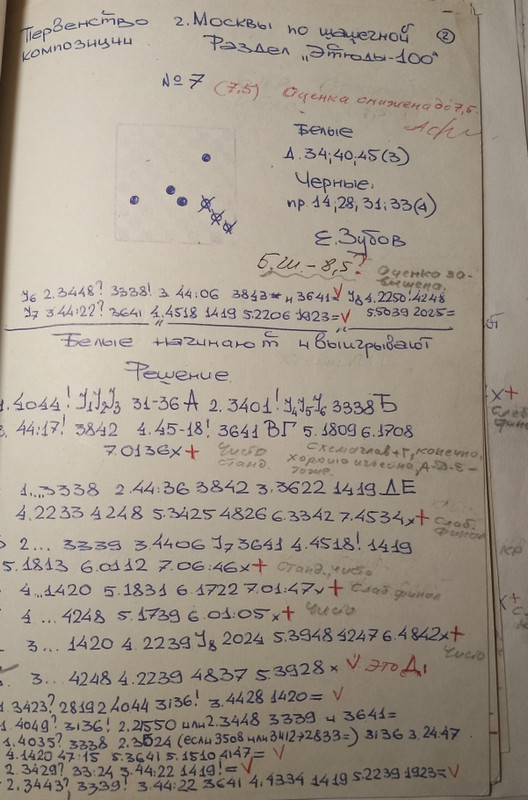 Первенство г. Москвы по шашечной ②
композиции Раздел „Этюды-100“
№ 7 (7,5) Оценка снижена до 7,5.
Белые
Д. 34; 40, 45 (3)
Черные.
пр. 14, 28, 31, 33 (4)
Е. Зубов
Б.Ш – 8,5? Оценка за-
вышена.
У6 2.3448? 3338! 3.44:06 3843 и 3641= √ У8 4.2250! 4248
У7 3.44:22? 3641 4.4518 1419 5.2206 1923= √ 5.5039 2025=
Белые начинают и выигрывают
Решение.
1.4044! У1У2У3 31-36 А 2.3401! У4У5У6 3338 Б
3. 44:17! 3842 4.45-18! 3641 ВГ 5.1809 6.1708
7.0136x+ Чисто станд. Схема глав+Г, конечно, хороша и чисто, А-Д-Е-тоже.
1....3338 2.44:36 3842 3.3622 1419 ДЕ
4.2233 4248 5.3425 4826 6.3342 7.4534x+ Слаб. финал
2... 3339 3.4406 У7 3641 4.4518! 1419
5.1813 6.0112 7.06:46x+ станд., чисто
4...1420 5.1831 6.1722 7.01:47x+ Слаб финал
4... 4248 5.1739 6.01:05x+ Чисто
3... 1420 4.2239 У8 2024 5.3948 4247 6.4842x+ Чисто
3... 4248 4.2239 4837 5.3928x √ Это Д1
1.3423? 2819 2.4044 3136! 3.4428 1420= √
1.4049? 3136! 2.2150 или 2.3448 3339 и 3641=
1.4035? 3338 2.3524 (если 3508 или 3412→2833=) 3136 3.24:47
4.1420 47:15 5.3641 5.1510 4147= √
2.3429? 33:24 3.44:22 1419!= √
2.3443? 3339! 3.44:22 3641 4.4334 1419 5.2239 1923= √